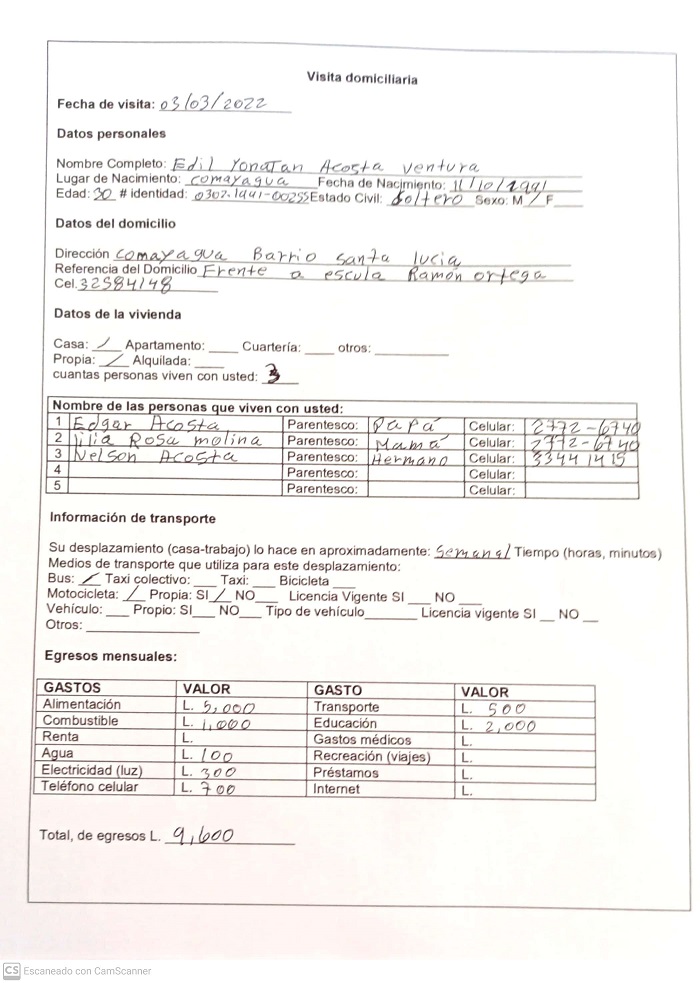 Visita domiciliaria
Fecha de visita: 03/03/2022
Datos personales
Nombre Completo: Edil Yonatan Acosta ventura
Lugar de Nacimiento: comayagua Fecha de Nacimiento: 11/10/1991
Edad: 30 # identidad: 0302-1991-00255 Estado Civil: soltero Sexo: M / F
Datos del domicilio
Dirección comayagua Barrio santa lucia
Referencia del Domicilio Frente a escula Ramón ortega
Cel. 32584148
Datos de la vivienda
Casa: / Apartamento: ____ Cuartería: ____ otros: ____
Propia: / Alquilada: ____
cuantas personas viven con usted: 3
Nombre de las personas que viven con usted:
1 Edgar Acosta Parentesco: Papá Celular: 2772-6740
2 lilia Rosa molina Parentesco: Mamá Celular: 2772-6740
3 Nelson Acosta Parentesco: Hermano Celular: 33441415
4 Parentesco: Celular:
5 Parentesco: Celular:
Información de transporte
Su desplazamiento (casa-trabajo) lo hace en aproximadamente: Semanal Tiempo (horas, minutos)
Medios de transporte que utiliza para este desplazamiento:
Bus: / Taxi colectivo: ____ Taxi: ____ Bicicleta ____
Motocicleta: / Propia: SI / NO____ Licencia Vigente SI ____ NO ____
Vehículo: ____ Propio: SI____ NO____ Tipo de vehículo________ Licencia vigente SI __ NO __
Otros: ____
Egresos mensuales:
GASTOS VALOR GASTO VALOR
Alimentación L. 5,000 Transporte L. 500
Combustible L. 1,000 Educación L. 2,000
Renta L. Gastos médicos L.
Agua L. 100 Recreación (viajes) L.
Electricidad (luz) L. 300 Préstamos L.
Teléfono celular L. 700 Internet L.
Total, de egresos L. 9,600
CS Escaneado con CamScanner